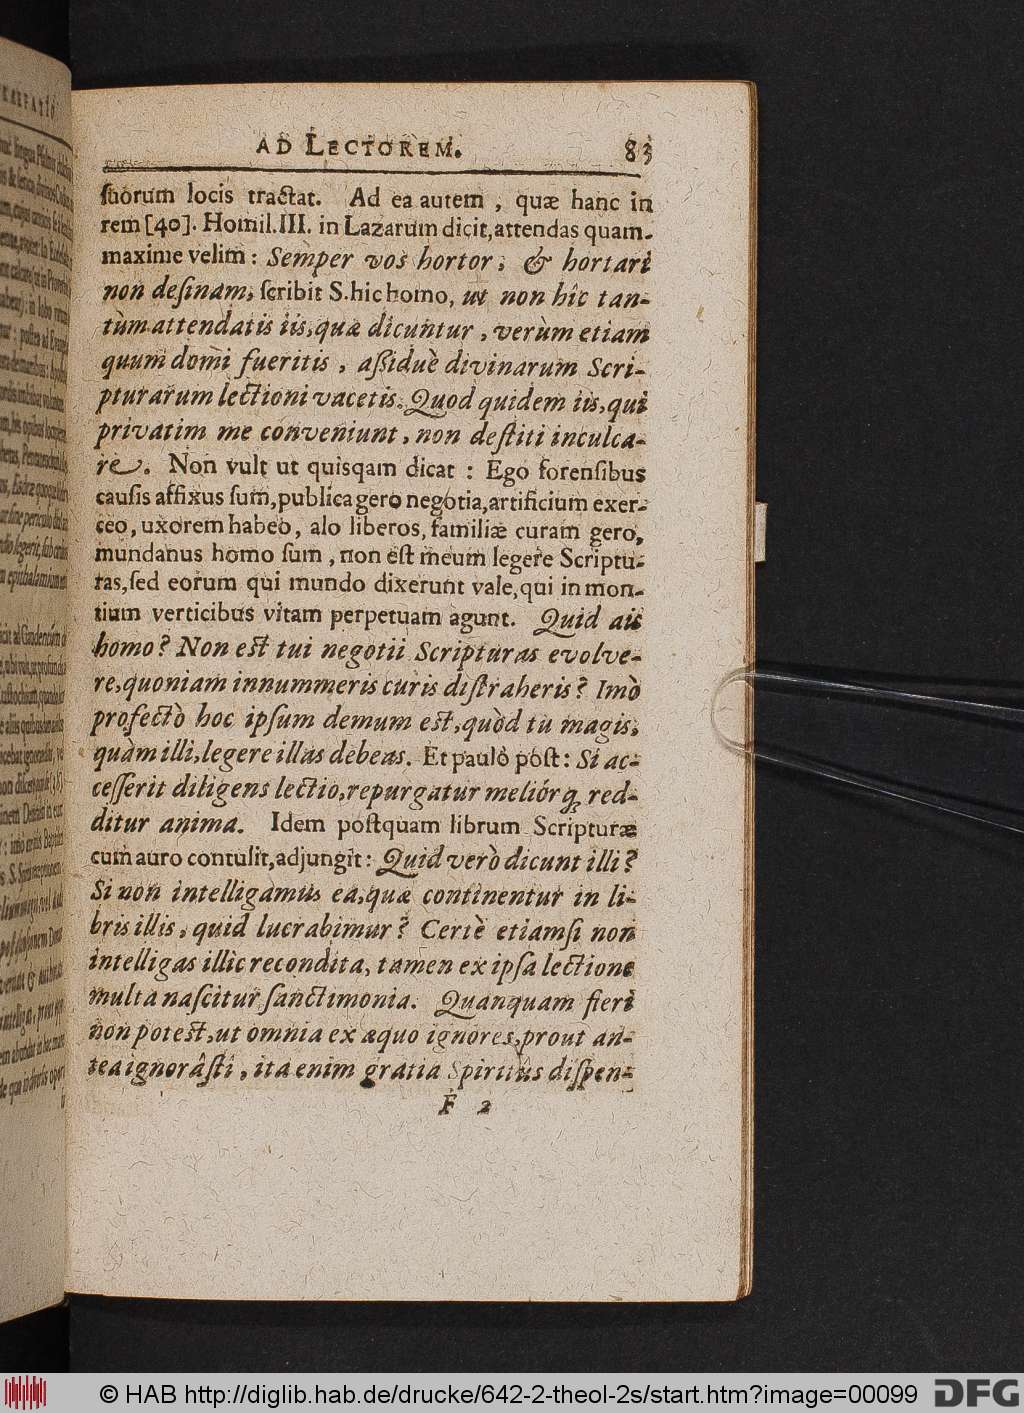 AD LECTOREM. 83
ſuorum locis tractat. Ad ea autem, quæ hanc in
rem [40]. Homil. III. in Lazarum dicit, attendas quam-
maxime velim: Semper vos hortor, & hortari
non deſinam, ſcribit S. hic homo, ut non hîc tan-
tùm attendatis iis, quæ dicuntur, verùm etiam
quum domi fueritis, aſſiduè divinarum Scri-
pturarum lectioni vacetis. Quod quidem iis, qui
privatim me conveniunt, non deſtiti inculca-
re. Non vult ut quisqam dicat: Ego forenſibus
cauſis affixus ſum, publica gero negotia, artificium exer-
ceo, uxorem habeo, alo liberos, familiæ curam gero,
mundanus homo ſum, non eſt meum legere Scriptu-
ras, ſed eorum qui mundo dixerunt vale, qui in mon-
tium verticibus vitam perpetuam agunt. Quid ais
homo? Non eſt tui negotii Scripturas evolve-
re, quoniam innummeris curis diſtraheris? Imò
profectò hoc ipſum demum eſt, quòd tu magis,
quàm illi, legere illas debeas. Et paulò poſt: Si ac-
ceſſerit diligens lectio, repurgatur meliórq; red-
ditur anima. Idem poſtquam librum Scripturæ
cum auro contulit, adjungit: Quid verò dicunt illi?
Si non intelligamus ea, quæ continentur in li-
bris illis, quid lucrabimur? Certè etiamſi non
intelligas illìc recondita, tamen ex ipſa lectione
multa naſcitur ſanctimonia. Quanquam fieri
non poteſt, ut omnia ex æquo ignores, prout an-
tea ignorâſti, ita enim gratia Spiritûs diſpen-
F 2
© HAB http://diglib.hab.de/drucke/642-2-theol-2s/start.htm?image=00099 DFG